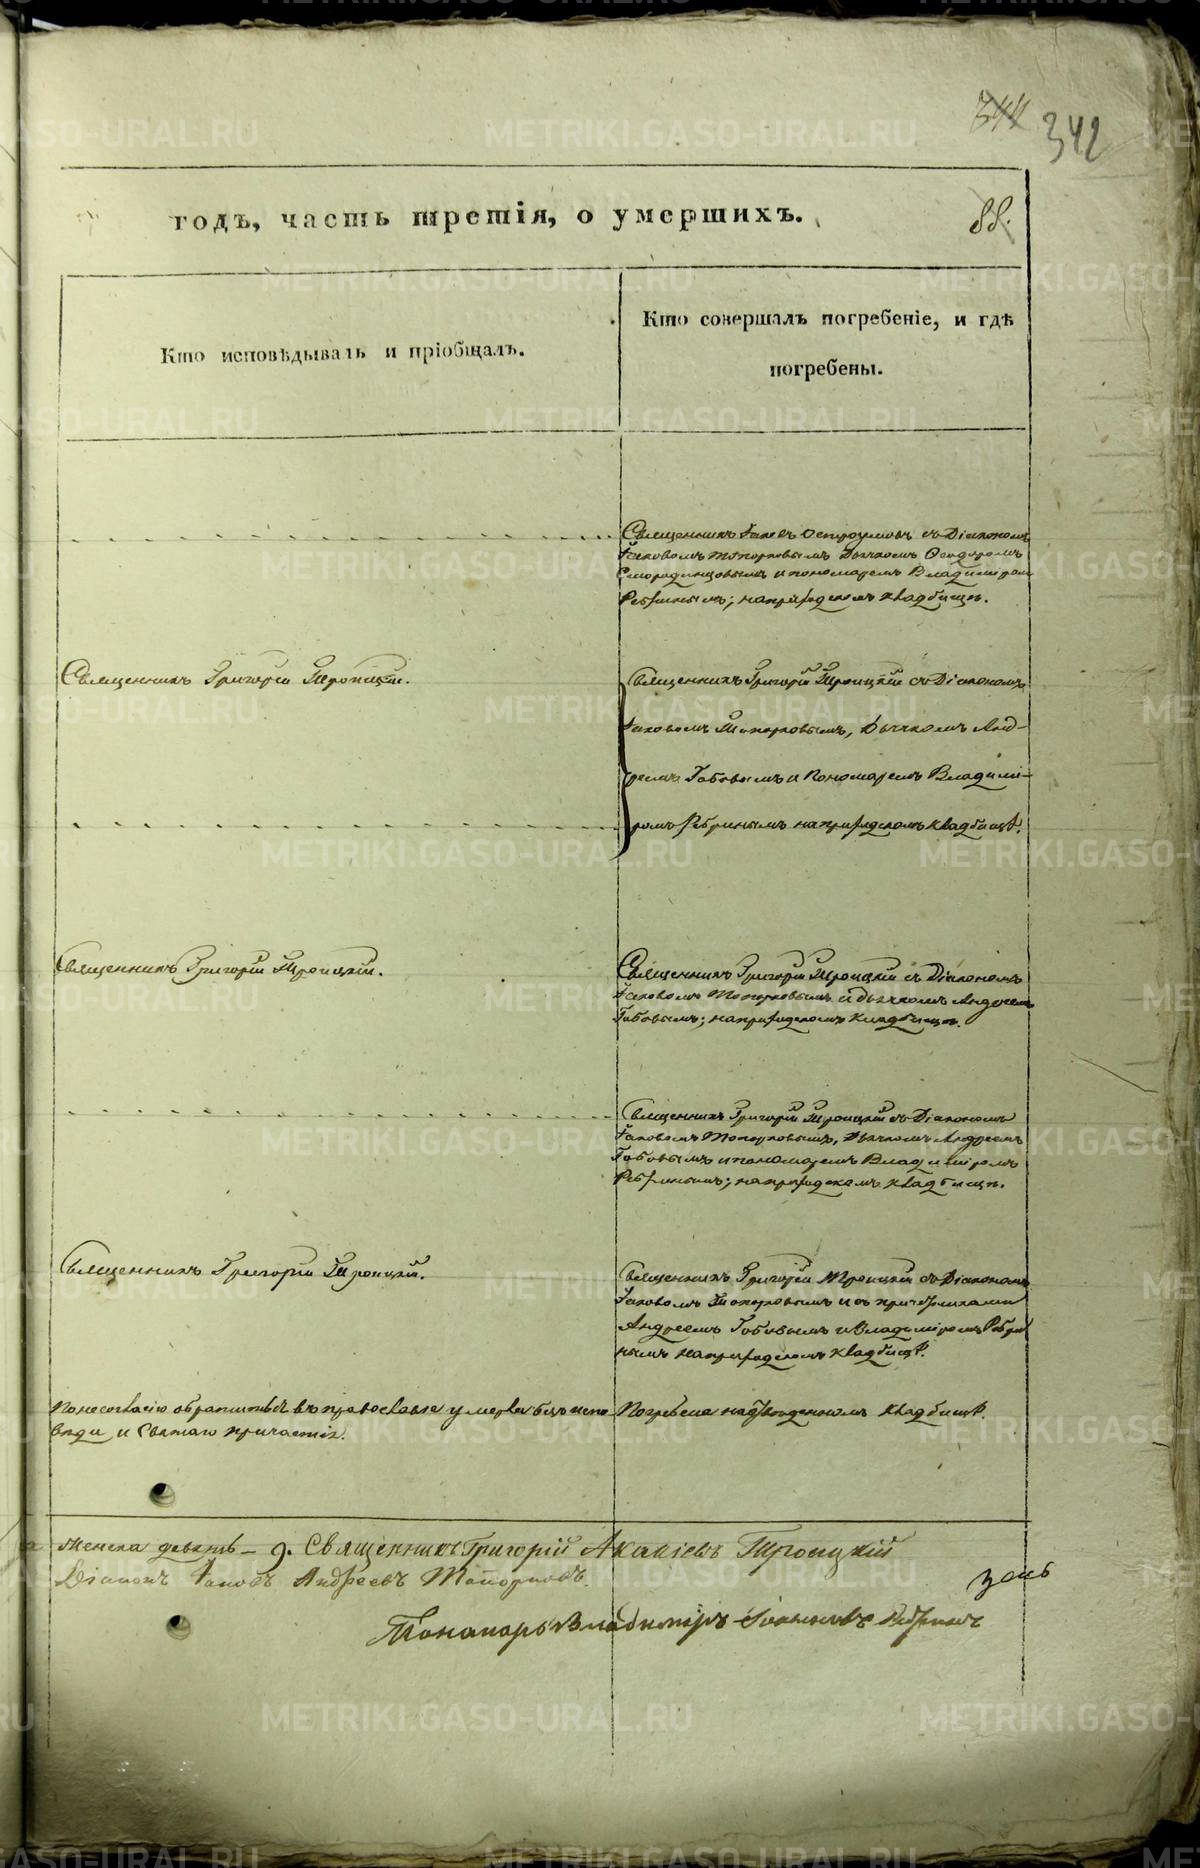 344 342
годъ, часть третія, о умершихъ. 88.
Кто исповѣдывалъ и пріобщалъ.
Кто совершалъ погребеніе, и гдѣ
погребены.
Священникъ Іаковъ Остроумовъ съ Діакономъ
Іаковомъ Топорковымъ Дьячкомъ Ѳеодоромъ
Смородинцовымъ и пономаремъ Владиміром
Ребринымъ; наприходскомъ кладбищѣ.
Священникъ Григорій Троицкій.
Священникъ Григорій Троицкій съ Діакономъ
Іаковомъ Топорковымъ, Дьячкомъ Анд-
реемъ Бабовымъ и Пономаремъ Владимі-
ромъ Ребринымъ наприходскомъ кладбищѣ.
Священникъ Григорій Троицкій.
Священникъ Григорій Троицкій съ Діакономъ
Іаковомъ Топорковымъ и дьячкомъ Андреемъ
наприходскомъ кладбищѣ.
Священникъ Григорій Троицкій съ Діакономъ
Іаковомъ Топорковымъ, Дьячкомъ Андреемъ
и пономаремъ Владиміромъ
Ребринымъ; наприходскомъ кладбищѣ.
Священникъ Григорій Троицкій.
Священникъ Григорій Троицкій съ Діакономъ
Іаковомъ Топорковымъ и съ причетниками
Андреемъ и Владиміромъ Ребри
нымъ наприходскомъ кладбищѣ.
Понесогласію обратиться въ православіе умерла безъ испо
вѣди и Святаго причастія.
Погребена на отведенномъ кладбищѣ.
женска девять – 9. Священникъ Григорій Акакіевъ Троицкій
Діаконъ Іаковъ Андреевъ Топорковъ.
Пономарь Владиміръ Ребринъ